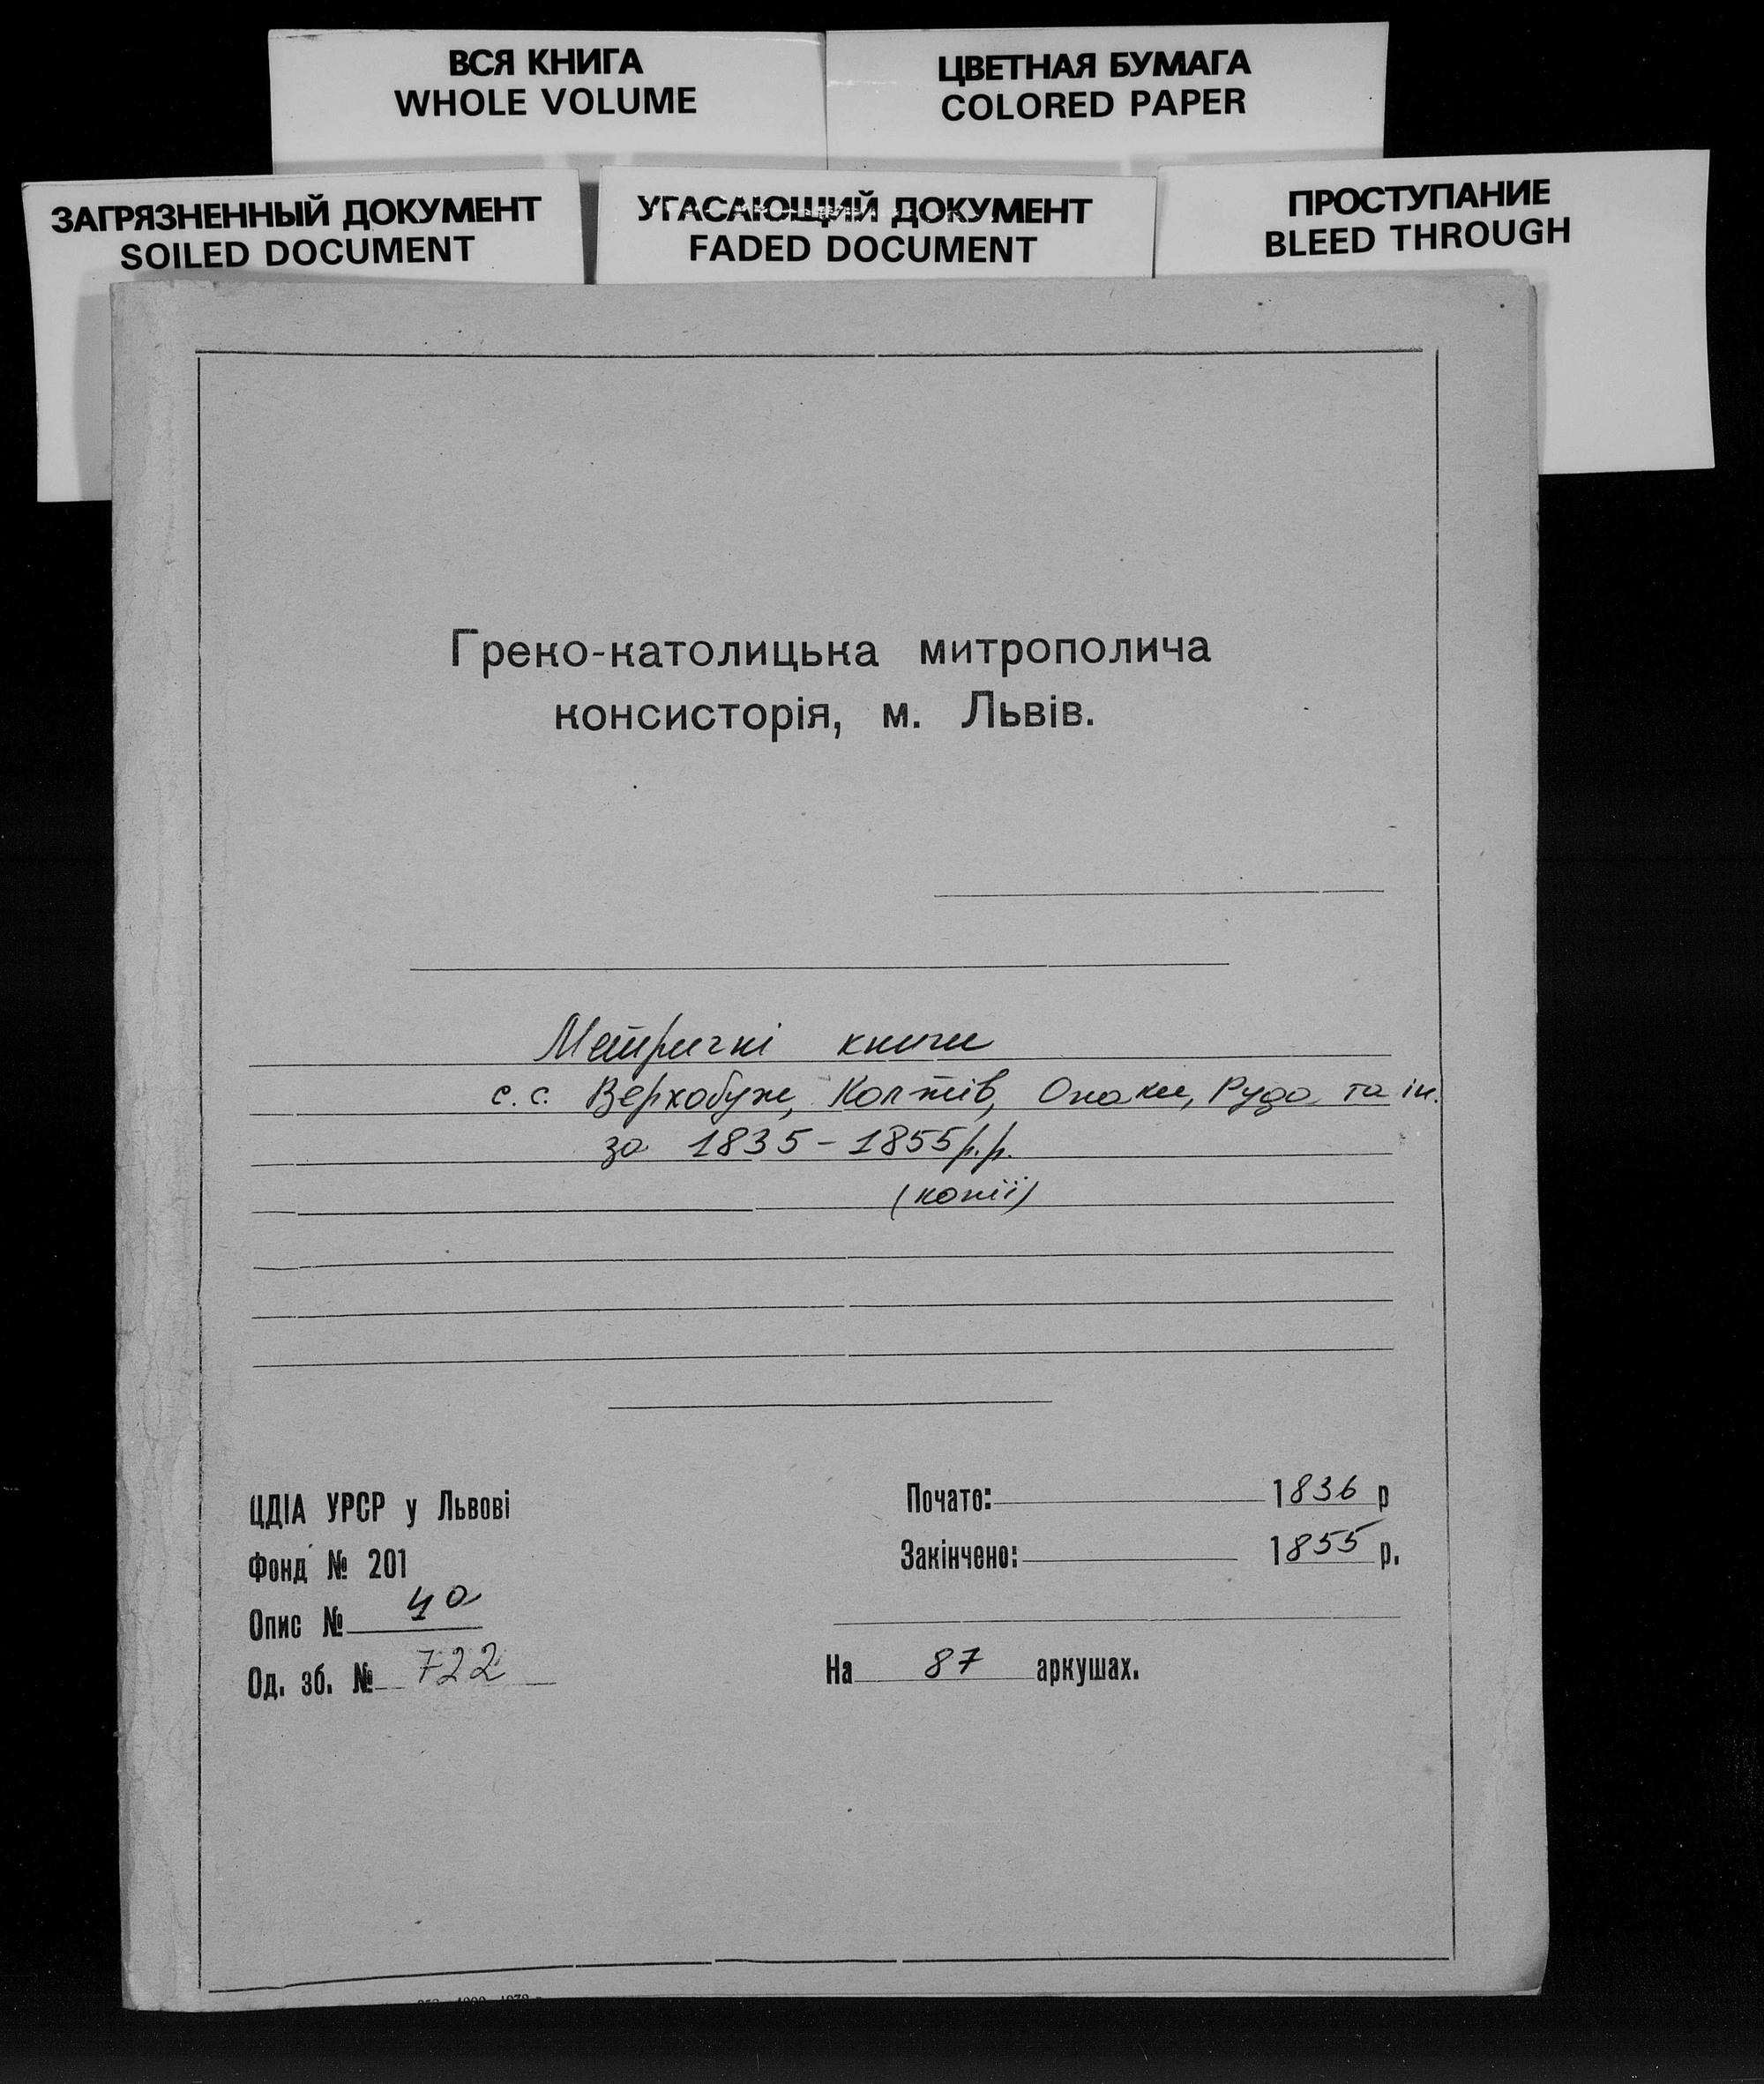 ВСЯ КНИГА
WHOLE VOLUME
ЦВЕТНАЯ БУМАГА
COLORED PAPER
ЗАГРЯЗНЕННЫЙ ДОКУМЕНТ
SOILED DOCUMENT
УГАСАЮЩИЙ ДОКУМЕНТ
FADED DOCUMENT
ПРОСТУПАНИЕ
BLEED THROUGH
Греко-католицька митрополича
консисторія, м. Львів.
Метричні книги
с.с. Верхобуж, Колтів, Опаки, Руда та ін.
за 1835-1855 р.р.
(копії)
ЦДІА УРСР у Львові
Фонд № 201
Опис № 4а
Од. зб. № 722
Почато: 1836 р
Закінчено: 1855 р.
На 87 аркушах.